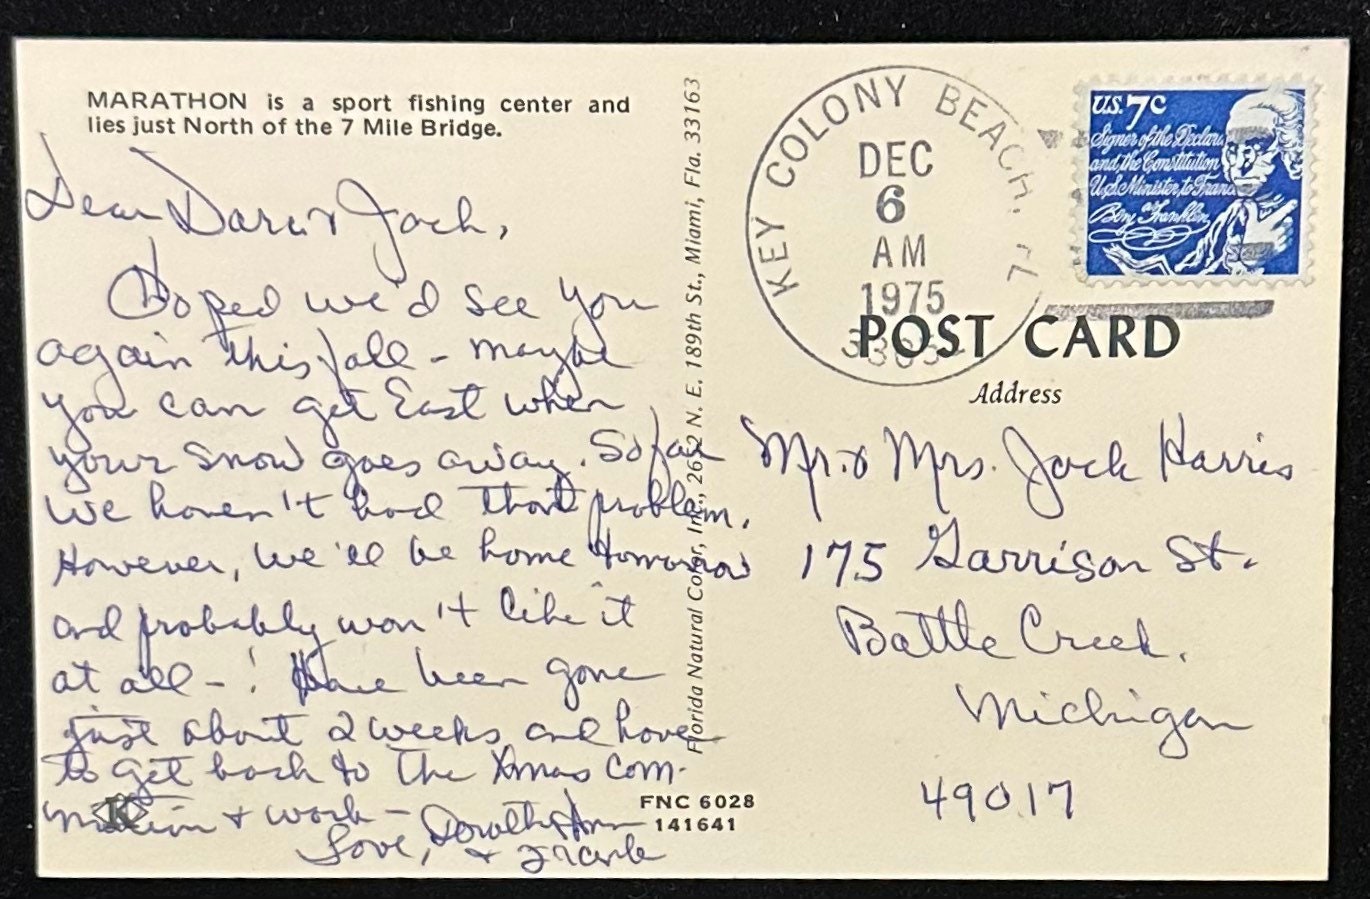 MARATHON is a sport fishing center and
lies just North of the 7 Mile Bridge.
Dear & Jack,
Hoped we'd see you
again this fall - maybe
you can get East when
your snow goes away. So far
we haven't had that problem.
However, we'll be home tomorrow
and probably won't like it
at all - ! Have been gone
just about 2 weeks and have
to get back to the Xmas com-
motion & work -
Love, Dorothy Ann
& Frank
Florida Natural Color, Inc., 2652 N. E. 189th St., Miami, Fla. 33163
K
FNC 6028
141641
KEY COLONY BEACH, FL
DEC
6
AM
1975
U.S. 7c
Signer of the Declara
and the Constitution
U.S. Minister to Franc
Benj Franklin
POST CARD
Address
Mr. & Mrs. Jack Harris
175 Garrison St.
Battle Creek,
Michigan
49017